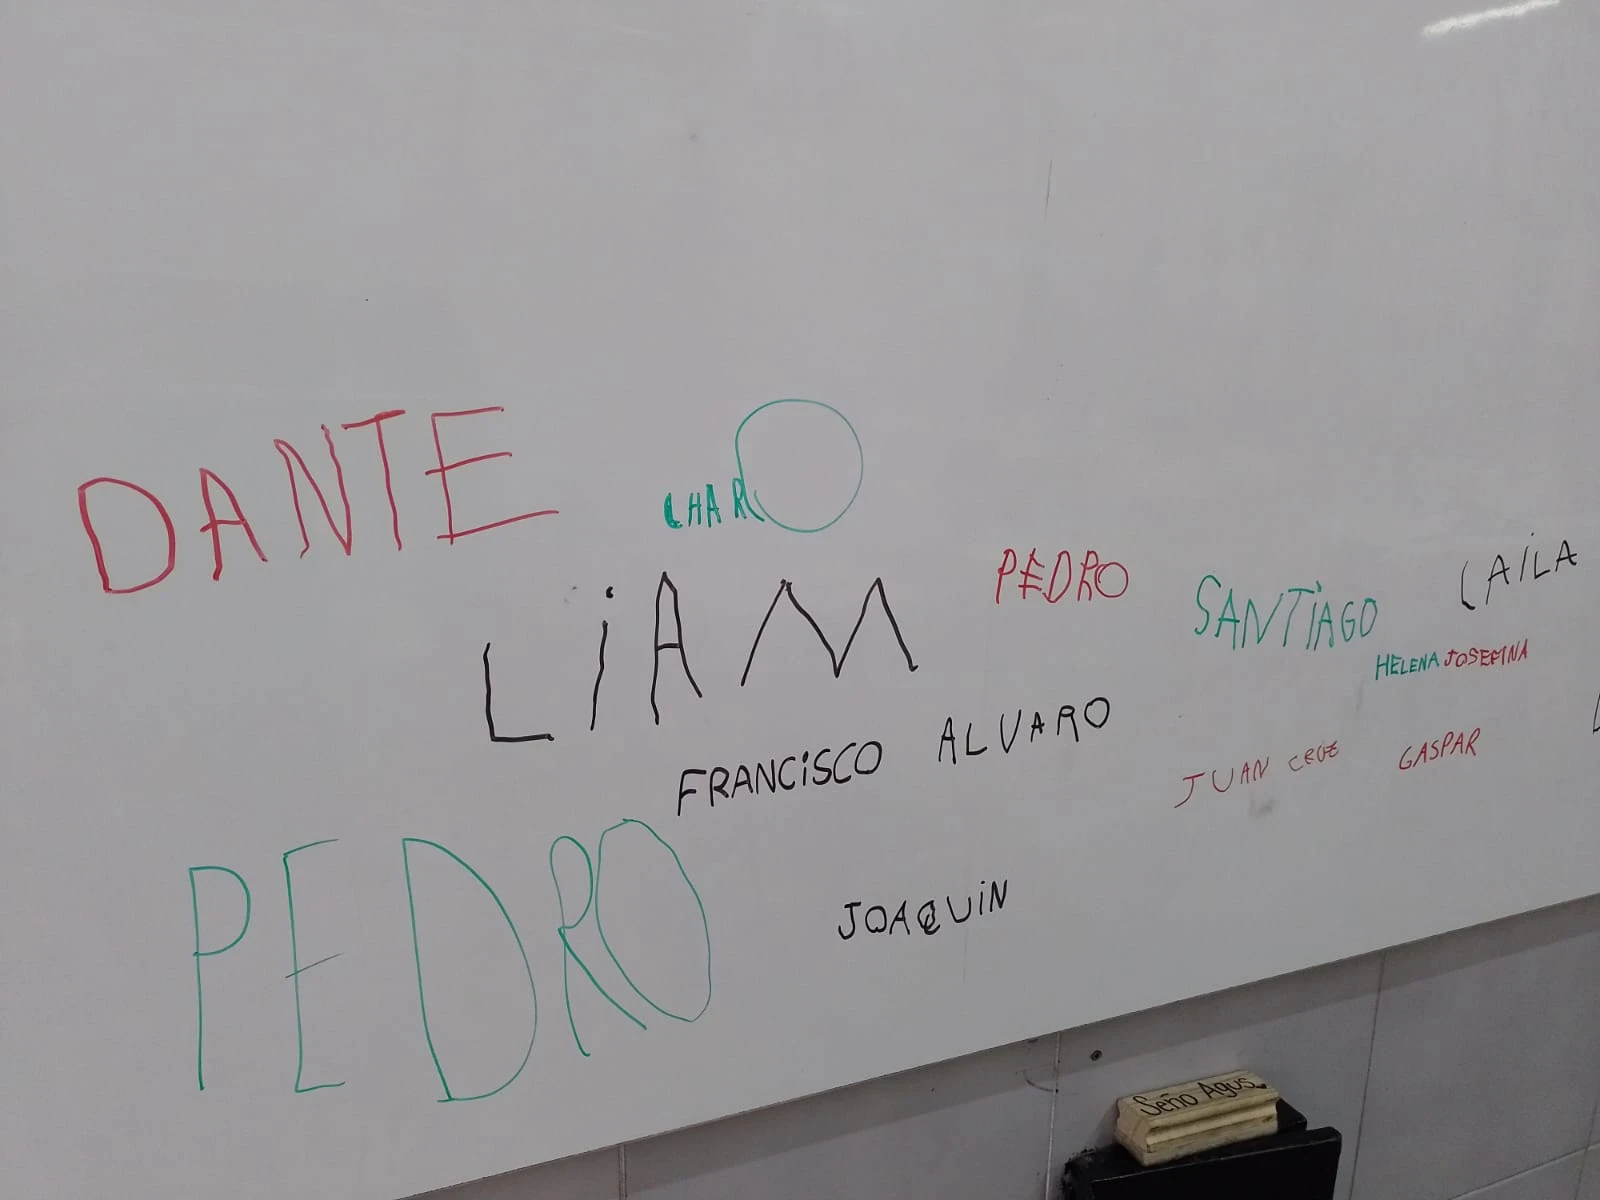 DANTE
CHARO
LiAM
PEDRO
SANTiAGO
LAiLA
HELENA JOSEFINA
FRANCiSCO
ALVARO
JUAN CRUZ
GASPAR
PEDRO
JOAQUiN
Seño Agus